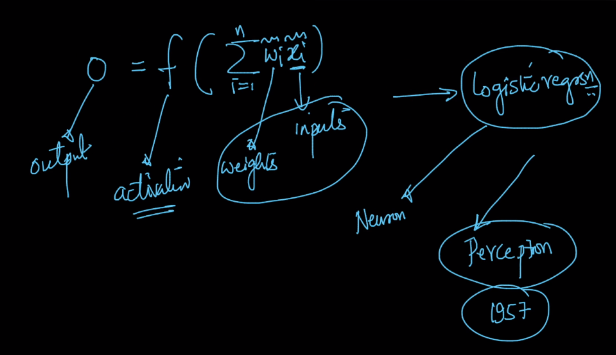 O = f ( n Σ i=1 wi xi )
output
activation
weights
inputs
logistic regrsn
Neuron
Perceptron
1957